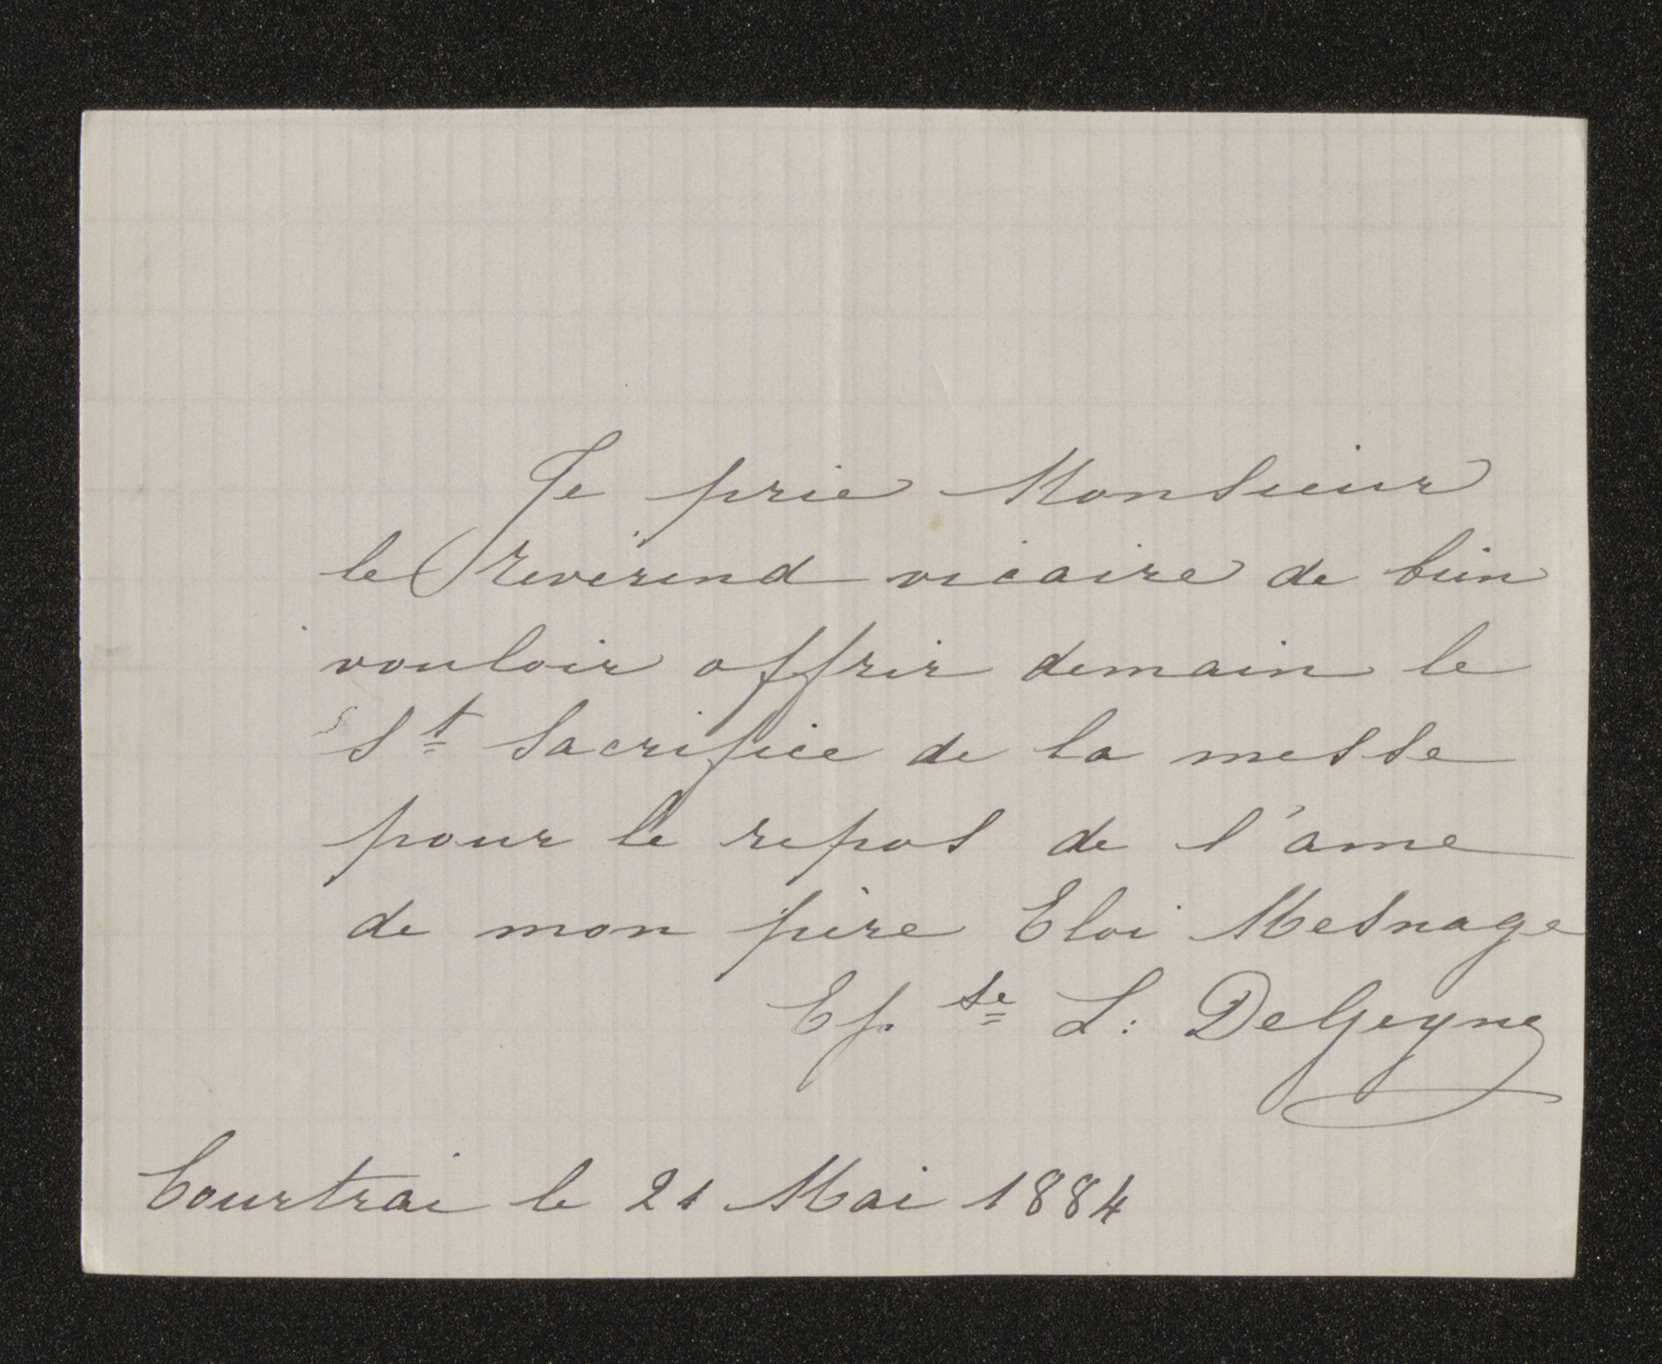 Je prie Monsieur
le Révérend vicaire de bien
vouloir offrir demain le
St Sacrifice de la messe
pour le repos de l'ame
de mon père Eloi Mesnage
Epse L: DeGeyne
Courtrai le 21 Mai 1884